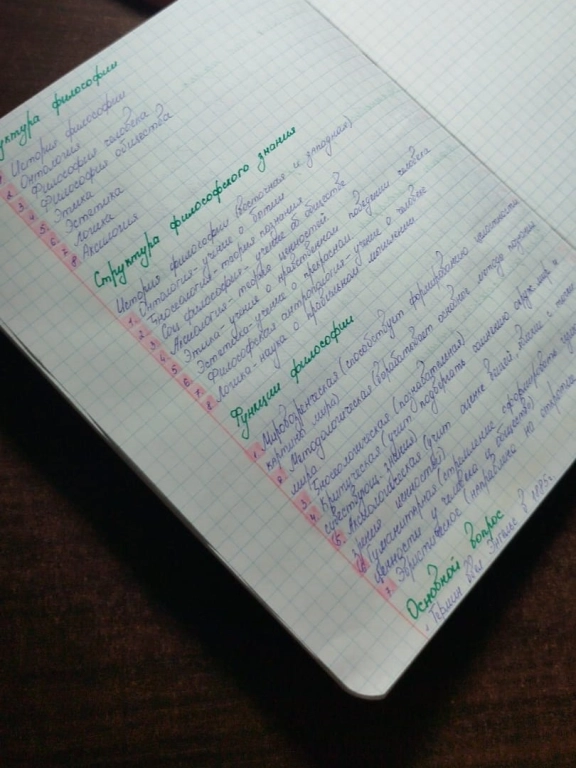 уктура философии
1 История философии
2 Онтология
3 Философия человека
4 Философия общества
5. Этика
6 Эстетика
7 Логика
8. Аксиология
Структура философского знания
История философии (восточная и западная)
1. Онтология- учение о бытии
2 Гносеология- теория познания
3 Соц философия- учение об обществе
4 Аксиология- теория ценностей
5 Этика- учение о нравственном поведении человека
6. Эстетика- учение о прекрасном
7. Философская антропология- учение о человеке
8 Логика- наука о правильном мышлении
Функции философии
1. Мировоззренческая (способствует формированию целостности
картины мира)
2 Методологическая (вырабатывает основные методы познания
мира
3. Гносеологическая (познавательная)
4 Критическая (учит подвергать сомнению окруж. мир и
существующ. знания)
5. Аксиологическая (учит оценке вещей, явлений с точки
зрения ценностей)
6 Гуманитарная (стремление сформировать
ценности у человека и общества)
7. Эвристическое (направлена на
Основной вопрос
. Термин был в